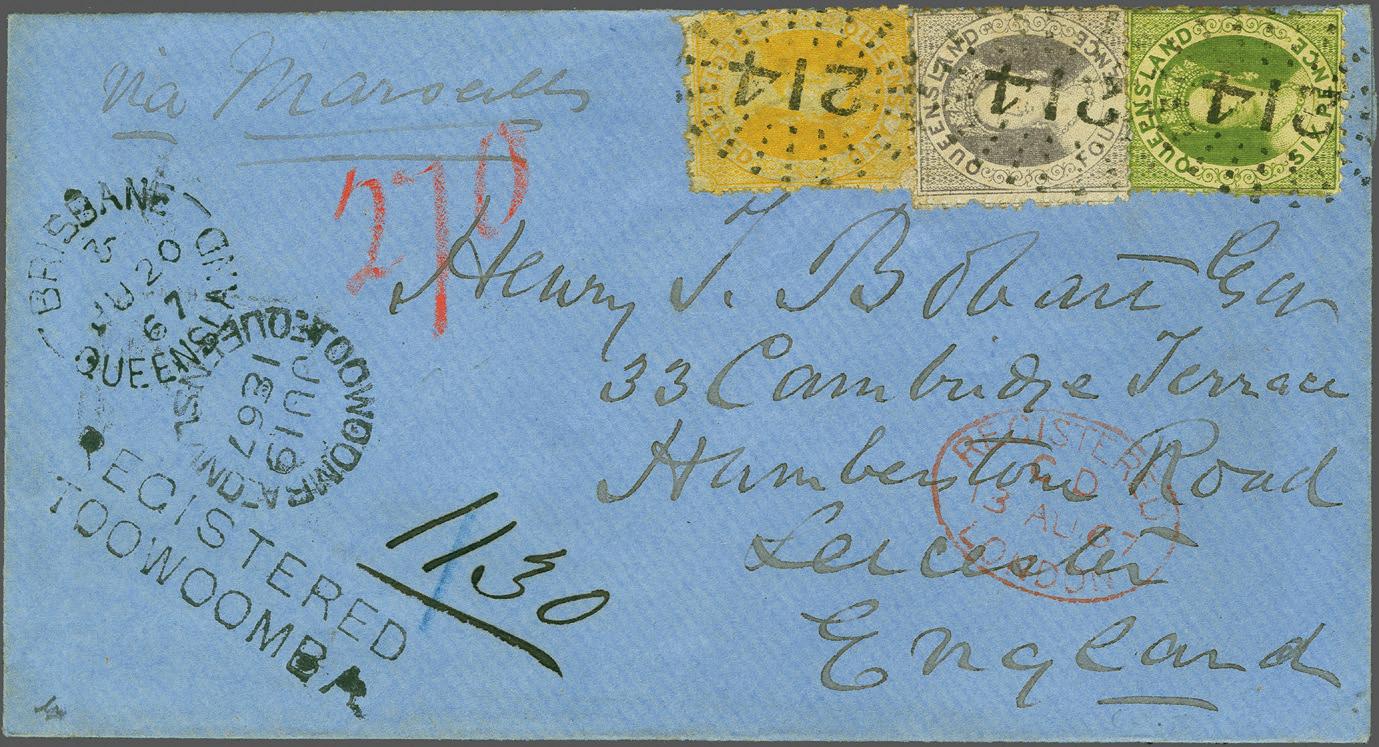 via Marseilles
214
QUEENSLAND
FOURPENCE
214
QUEENSLAND
SIXPENCE
214
2/10
BRISBANE
JU 20
67
QUEENSLAND
TOOWOOMBA QUEENSLAND
JU 19
1867
Henry T. Bobart Esq
33 Cambridge Terrace
Humberstone Road
Leicester
England
REGISTERED
13 AU 67
LONDON
REGISTERED
TOOWOOMBA
1130